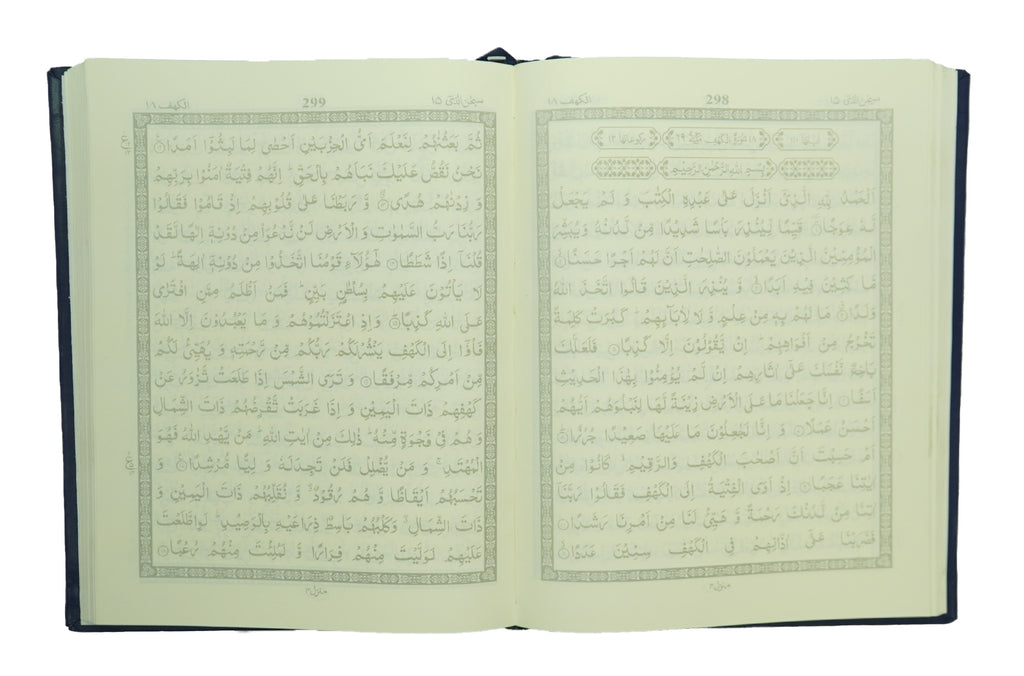 سبحٰن الذی ۱۵
298
الكهف ۱۸
اٰیاتها ۱۱۰
۱۸ سُوْرَةُ الْكَهْفِ مَكِّیَّةٌ ۶۹
رکوعاتها ۱۲
بِسْمِ اللّٰهِ الرَّحْمٰنِ الرَّحِیْمِ
اَلْحَمْدُ لِلّٰهِ الَّذِیْۤ اَنْزَلَ عَلٰی عَبْدِهِ الْكِتٰبَ وَ لَمْ یَجْعَلْ
لَّهٗ عِوَجًا قَیِّمًا لِّیُنْذِرَ بَاْسًا شَدِیْدًا مِّنْ لَّدُنْهُ وَ یُبَشِّرَ
الْمُؤْمِنِیْنَ الَّذِیْنَ یَعْمَلُوْنَ الصّٰلِحٰتِ اَنَّ لَهُمْ اَجْرًا حَسَنًا
مَّا كِثِیْنَ فِیْهِ اَبَدًا وَّ یُنْذِرَ الَّذِیْنَ قَالُوا اتَّخَذَ اللّٰهُ
وَلَدًا مَا لَهُمْ بِهٖ مِنْ عِلْمٍ وَّ لَا لِاٰبَآىِٕهِمْ كَبُرَتْ كَلِمَةً
تَخْرُجُ مِنْ اَفْوَاهِهِمْ اِنْ یَّقُوْلُوْنَ اِلَّا كَذِبًا فَلَعَلَّكَ
بَاخِعٌ نَّفْسَكَ عَلٰۤی اٰثَارِهِمْ اِنْ لَّمْ یُؤْمِنُوْا بِهٰذَا الْحَدِیْثِ
اَسَفًا اِنَّا جَعَلْنَا مَا عَلَی الْاَرْضِ زِیْنَةً لَّهَا لِنَبْلُوَهُمْ اَیُّهُمْ
اَحْسَنُ عَمَلًا وَ اِنَّا لَجٰعِلُوْنَ مَا عَلَیْهَا صَعِیْدًا جُرُزًا
اَمْ حَسِبْتَ اَنَّ اَصْحٰبَ الْكَهْفِ وَ الرَّقِیْمِ كَانُوْا مِنْ
اٰیٰتِنَا عَجَبًا اِذْ اَوَی الْفِتْیَةُ اِلَی الْكَهْفِ فَقَالُوْا رَبَّنَاۤ
اٰتِنَا مِنْ لَّدُنْكَ رَحْمَةً وَّ هَیِّئْ لَنَا مِنْ اَمْرِنَا رَشَدًا
فَضَرَبْنَا عَلٰۤی اٰذَانِهِمْ فِی الْكَهْفِ سِنِیْنَ عَدَدًا
منزل۴
سبحٰن الذی ۱۵
299
الكهف ۱۸
ثُمَّ بَعَثْنٰهُمْ لِنَعْلَمَ اَیُّ الْحِزْبَیْنِ اَحْصٰی لِمَا لَبِثُوْۤا اَمَدًا
نَحْنُ نَقُصُّ عَلَیْكَ نَبَاَهُمْ بِالْحَقِّ اِنَّهُمْ فِتْیَةٌ اٰمَنُوْا بِرَبِّهِمْ
وَ زِدْنٰهُمْ هُدًی وَّ رَبَطْنَا عَلٰی قُلُوْبِهِمْ اِذْ قَامُوْا فَقَالُوْا
رَبُّنَا رَبُّ السَّمٰوٰتِ وَ الْاَرْضِ لَنْ نَّدْعُوَا۠ مِنْ دُوْنِهٖۤ اِلٰهًا لَّقَدْ
قُلْنَاۤ اِذًا شَطَطًا هٰۤؤُلَآءِ قَوْمُنَا اتَّخَذُوْا مِنْ دُوْنِهٖۤ اٰلِهَةً لَوْ
لَا یَاْتُوْنَ عَلَیْهِمْ بِسُلْطٰنٍۭ بَیِّنٍ فَمَنْ اَظْلَمُ مِمَّنِ افْتَرٰی
عَلَی اللّٰهِ كَذِبًا وَ اِذِ اعْتَزَلْتُمُوْهُمْ وَ مَا یَعْبُدُوْنَ اِلَّا اللّٰهَ
فَاْوٗۤا اِلَی الْكَهْفِ یَنْشُرْ لَكُمْ رَبُّكُمْ مِّنْ رَّحْمَتِهٖ وَ یُهَیِّئْ لَكُمْ
مِّنْ اَمْرِكُمْ مِّرْفَقًا وَ تَرَی الشَّمْسَ اِذَا طَلَعَتْ تَّزٰوَرُ عَنْ
كَهْفِهِمْ ذَاتَ الْیَمِیْنِ وَ اِذَا غَرَبَتْ تَّقْرِضُهُمْ ذَاتَ الشِّمَالِ
وَ هُمْ فِیْ فَجْوَةٍ مِّنْهُ ذٰلِكَ مِنْ اٰیٰتِ اللّٰهِ مَنْ یَّهْدِ اللّٰهُ فَهُوَ
الْمُهْتَدِ وَ مَنْ یُّضْلِلْ فَلَنْ تَجِدَ لَهٗ وَلِیًّا مُّرْشِدًا وَ
تَحْسَبُهُمْ اَیْقَاظًا وَّ هُمْ رُقُوْدٌ وَّ نُقَلِّبُهُمْ ذَاتَ الْیَمِیْنِ وَ
ذَاتَ الشِّمَالِ وَ كَلْبُهُمْ بَاسِطٌ ذِرَاعَیْهِ بِالْوَصِیْدِ لَوِ اطَّلَعْتَ
عَلَیْهِمْ لَوَلَّیْتَ مِنْهُمْ فِرَارًا وَّ لَمُلِئْتَ مِنْهُمْ رُعْبًا
منزل۴